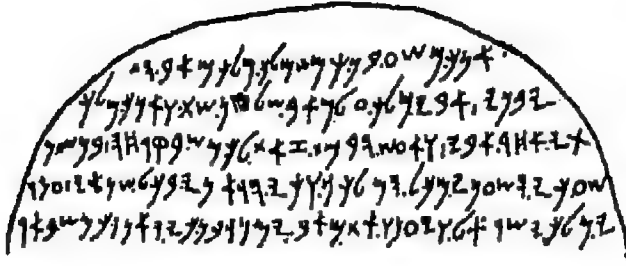 𐤀𐤍𐤊.𐤌𐤔𐤏.𐤁𐤍.𐤊𐤌𐤔𐤌𐤋𐤊.𐤌𐤋𐤊.𐤌𐤀𐤁.𐤄𐤃
𐤉𐤁𐤍𐤉|𐤀𐤁𐤉.𐤌𐤋𐤊.𐤏𐤋.𐤌𐤀𐤁.𐤔𐤋𐤔𐤍.𐤔𐤕.𐤅𐤀𐤍𐤊.𐤌𐤋𐤊
𐤕𐤉.𐤀𐤇𐤓.𐤀𐤁𐤉|𐤅𐤀𐤏𐤔.𐤄𐤁𐤌𐤕.𐤆𐤀𐤕.𐤋𐤊𐤌𐤔.𐤁𐤒𐤓𐤇𐤄|
𐤔𐤏.𐤊𐤉.𐤄𐤔𐤏𐤍𐤉.𐤌𐤊𐤋.𐤄𐤌𐤋𐤊𐤍.𐤅𐤊𐤉.𐤄𐤓𐤀𐤍𐤉.𐤁𐤊𐤋.𐤔𐤍𐤀𐤉|𐤏𐤌𐤓
𐤉.𐤌𐤋𐤊.𐤉𐤔𐤓𐤀𐤋.𐤅𐤉𐤏𐤍𐤅.𐤀𐤕.𐤌𐤀𐤁.𐤉𐤌𐤍.𐤓𐤁𐤍.𐤊𐤉.𐤉𐤀𐤍𐤐.𐤊𐤌𐤔.𐤁𐤀𐤓